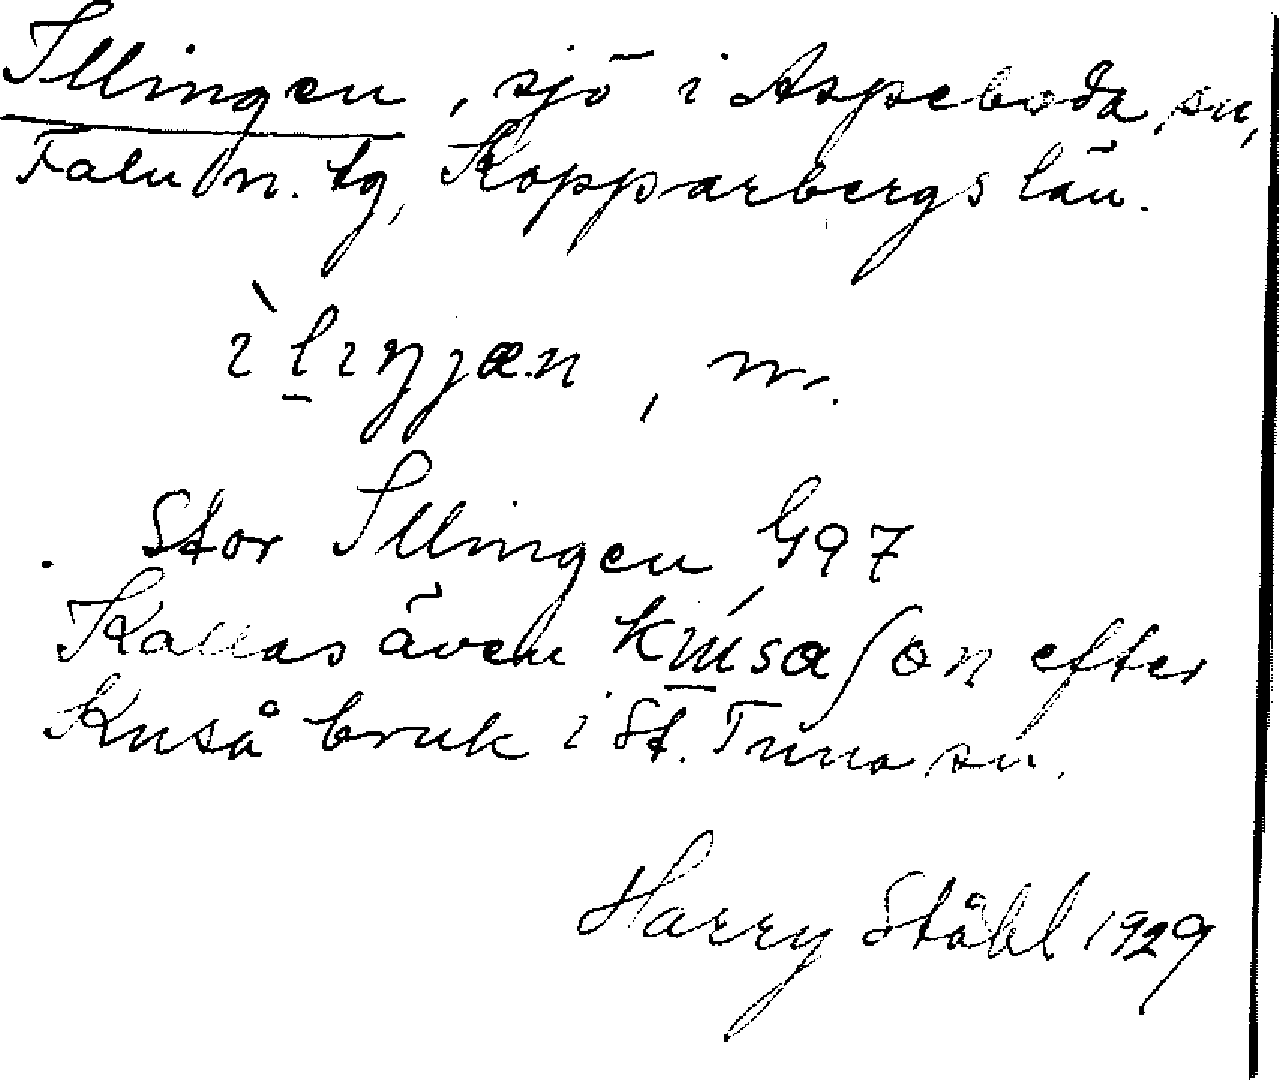 Illingen, sjö i Aspeboda sn,
Falu n. tg, Kopparbergs län.
ìlıŋjæn, m.
Stor Illingen, G97
Kallas även efter
Knså bruk i St. Tuna sn.
Harry Ståhl 1929